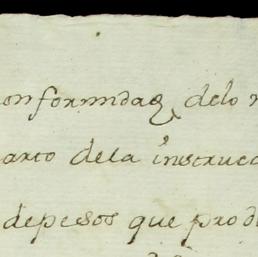 onformidad delo
arto dela instrucc
depesos que prod